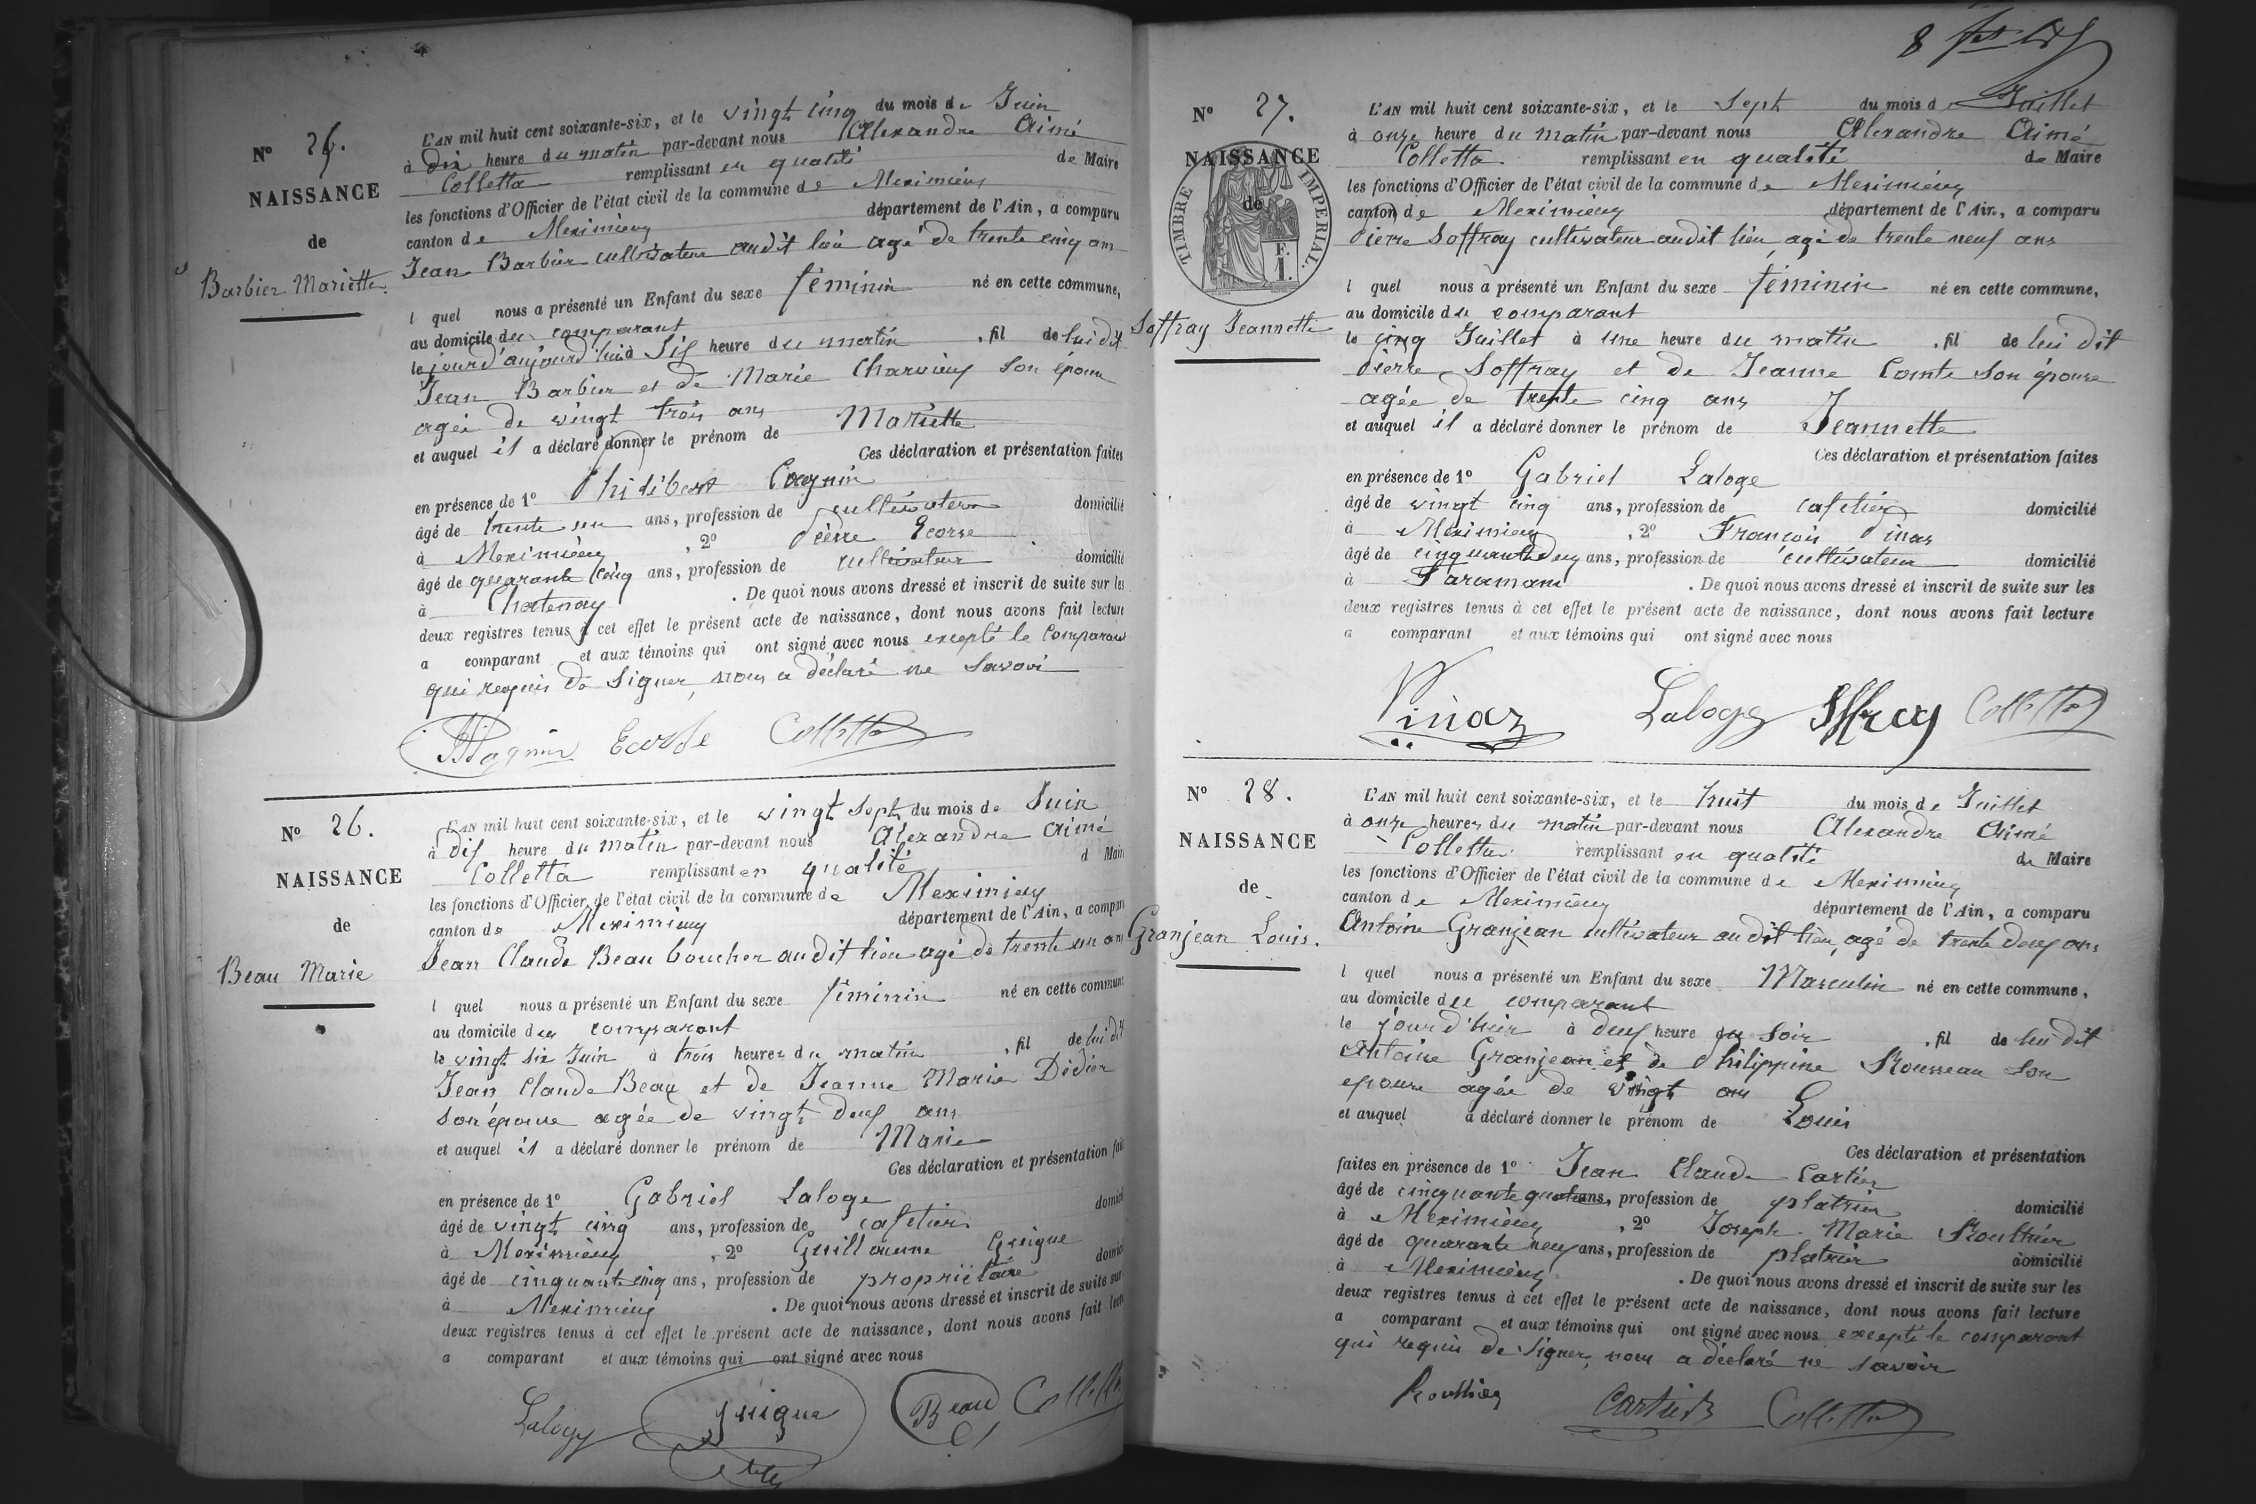 Nº 25.
NAISSANCE
de
Barbier Mariette.
L'AN mil huit cent soixante-six, et le vingt cinq du mois de Juin
à dix heure du matin par-devant nous Alexandre Aimé
Colletta remplissant en qualité de Maire
les fonctions d'Officier de l'état civil de la commune de Meximieux
canton de Meximieux département de l'Ain, a comparu
Jean Barbier cultivateur audit lieu agé de trente cinq ans
l quel nous a présenté un Enfant du sexe féminin né en cette commune,
au domicile du comparant
le jour d'aujourd'hui à six heure du matin , fil de lui dit
Jean Barbier et de Marie Charvieux son épouse
agée de vingt trois ans
et auquel il a déclaré donner le prénom de Mariette
Ces déclaration et présentation faites
en présence de 1º Philibert Cagnin
âgé de trente un ans, profession de cultivateur domicilié
à Meximieux , 2º Pierre Ecorse
âgé de quarante cinq ans, profession de cultivateur domicilié
à Chatenay . De quoi nous avons dressé et inscrit de suite sur les
deux registres tenus à cet effet le présent acte de naissance, dont nous avons fait lecture
a comparant et aux témoins qui ont signé avec nous excepté le comparant
qui requis de signer, nous a déclaré ne savoir
Ecorse Colletta
Nº 26.
NAISSANCE
de
Beau Marie
L'AN mil huit cent soixante-six, et le vingt sept du mois de Juin
à dix heure du matin par-devant nous Alexandre Aimé
Colletta remplissant en qualité d Maire
les fonctions d'Officier de l'état civil de la commune de Meximieux
canton de Meximieux département de l'Ain, a comparu
Jean Claude Beau boucher audit lieu agé de trente un ans
l quel nous a présenté un Enfant du sexe féminin né en cette commune
au domicile du comparant
le vingt six Juin à trois heures du matin , fil de lui dit
Jean Claude Beau et de Jeanne Marie Didier
son épouse agée de vingt deux ans
et auquel il a déclaré donner le prénom de Marie
Ces déclaration et présentation fai
en présence de 1º Gabriel Laloge
âgé de vingt cinq ans, profession de cafetier domicil
à Meximieux , 2º Guillaume Guigue
âgé de cinquante cinq ans, profession de propriétaire domici
à Meximieux . De quoi nous avons dressé et inscrit de suite sur
deux registres tenus à cet effet le présent acte de naissance, dont nous avons fait lect
a comparant et aux témoins qui ont signé avec nous
Laloge Guigue Beau Colletta
8
Nº 27.
NAISSANCE
de
TIMBRE IMPERIAL.
F.
1.
Soffray Jeannette
L'AN mil huit cent soixante-six, et le sept du mois d Juillet
à onze heure du matin par-devant nous Alexandre Aimé
Colletta remplissant en qualité de Maire
les fonctions d'Officier de l'état civil de la commune de Meximieux
canton de Meximieux département de l'Ain, a comparu
Pierre Soffray cultivateur audit lieu, agé de trente neuf ans
l quel nous a présenté un Enfant du sexe féminin né en cette commune,
au domicile du comparant
le cinq Juillet à une heure du matin , fil de lui dit
Pierre Soffray et de Jeanne Comte son épouse
agée de trente cinq ans
et auquel il a déclaré donner le prénom de Jeannette
Ces déclaration et présentation faites
en présence de 1º Gabriel Laloge
âgé de vingt cinq ans, profession de cafetier domicilié
à Meximieux , 2º François Vinaz
âgé de cinquante deux ans, profession de cultivateur domicilié
à Faramans . De quoi nous avons dressé et inscrit de suite sur les
deux registres tenus à cet effet le présent acte de naissance, dont nous avons fait lecture
a comparant et aux témoins qui ont signé avec nous
Vinaz Laloge Soffray Colletta
Nº 28.
NAISSANCE
de
Granjean Louis.
L'AN mil huit cent soixante-six, et le huit du mois de Juillet
à onze heures du matin par-devant nous Alexandre Aimé
Colletta remplissant en qualité de Maire
les fonctions d'Officier de l'état civil de la commune de Meximieux
canton de Meximieux département de l'Ain, a comparu
Antoine Granjean cultivateur audit lieu, agé de trente deux ans
l quel nous a présenté un Enfant du sexe Masculin né en cette commune,
au domicile du comparant
le jour d'hier à deux heure du soir , fil de lui dit
Antoine Granjean et de Philippine Rousseau son
épouse agée de vingt ans
et auquel a déclaré donner le prénom de Louis
Ces déclaration et présentation
faites en présence de 1º Jean Claude Cartier
âgé de cinquante quatre ans, profession de platrier domicilié
à Meximieux , 2º Joseph Marie Routhier
âgé de quarante neuf ans, profession de platrier domicilié
à Meximieux . De quoi nous avons dressé et inscrit de suite sur les
deux registres tenus à cet effet le présent acte de naissance, dont nous avons fait lecture
a comparant et aux témoins qui ont signé avec nous excepté le comparant
qui requis de signer, nous a déclaré ne savoir
Routhier Cartier Colletta